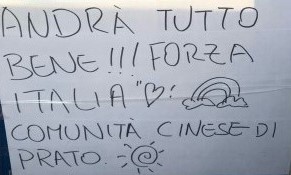 ANDRÀ TUTTO
BENE!!! FORZA
ITALIA "♡!
COMUNITÀ CINESE DI
PRATO.